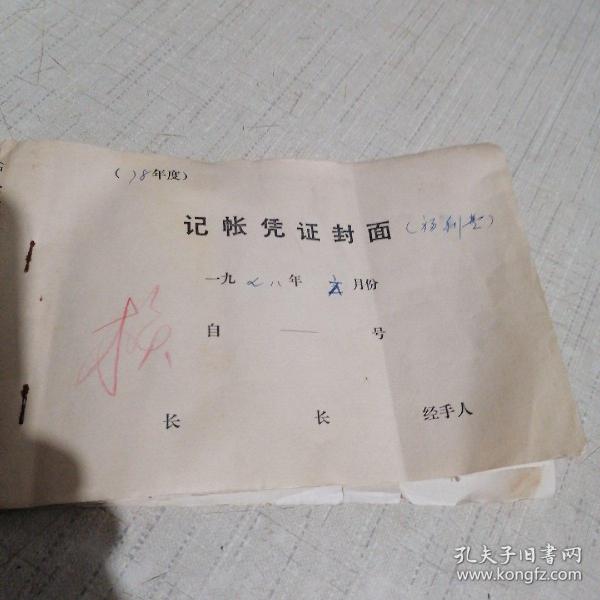 （78年度）
记帐凭证封面（福利费）
一九七八年 月份
自 — 号
长 长 经手人
孔夫子旧书网
www.kongfz.com